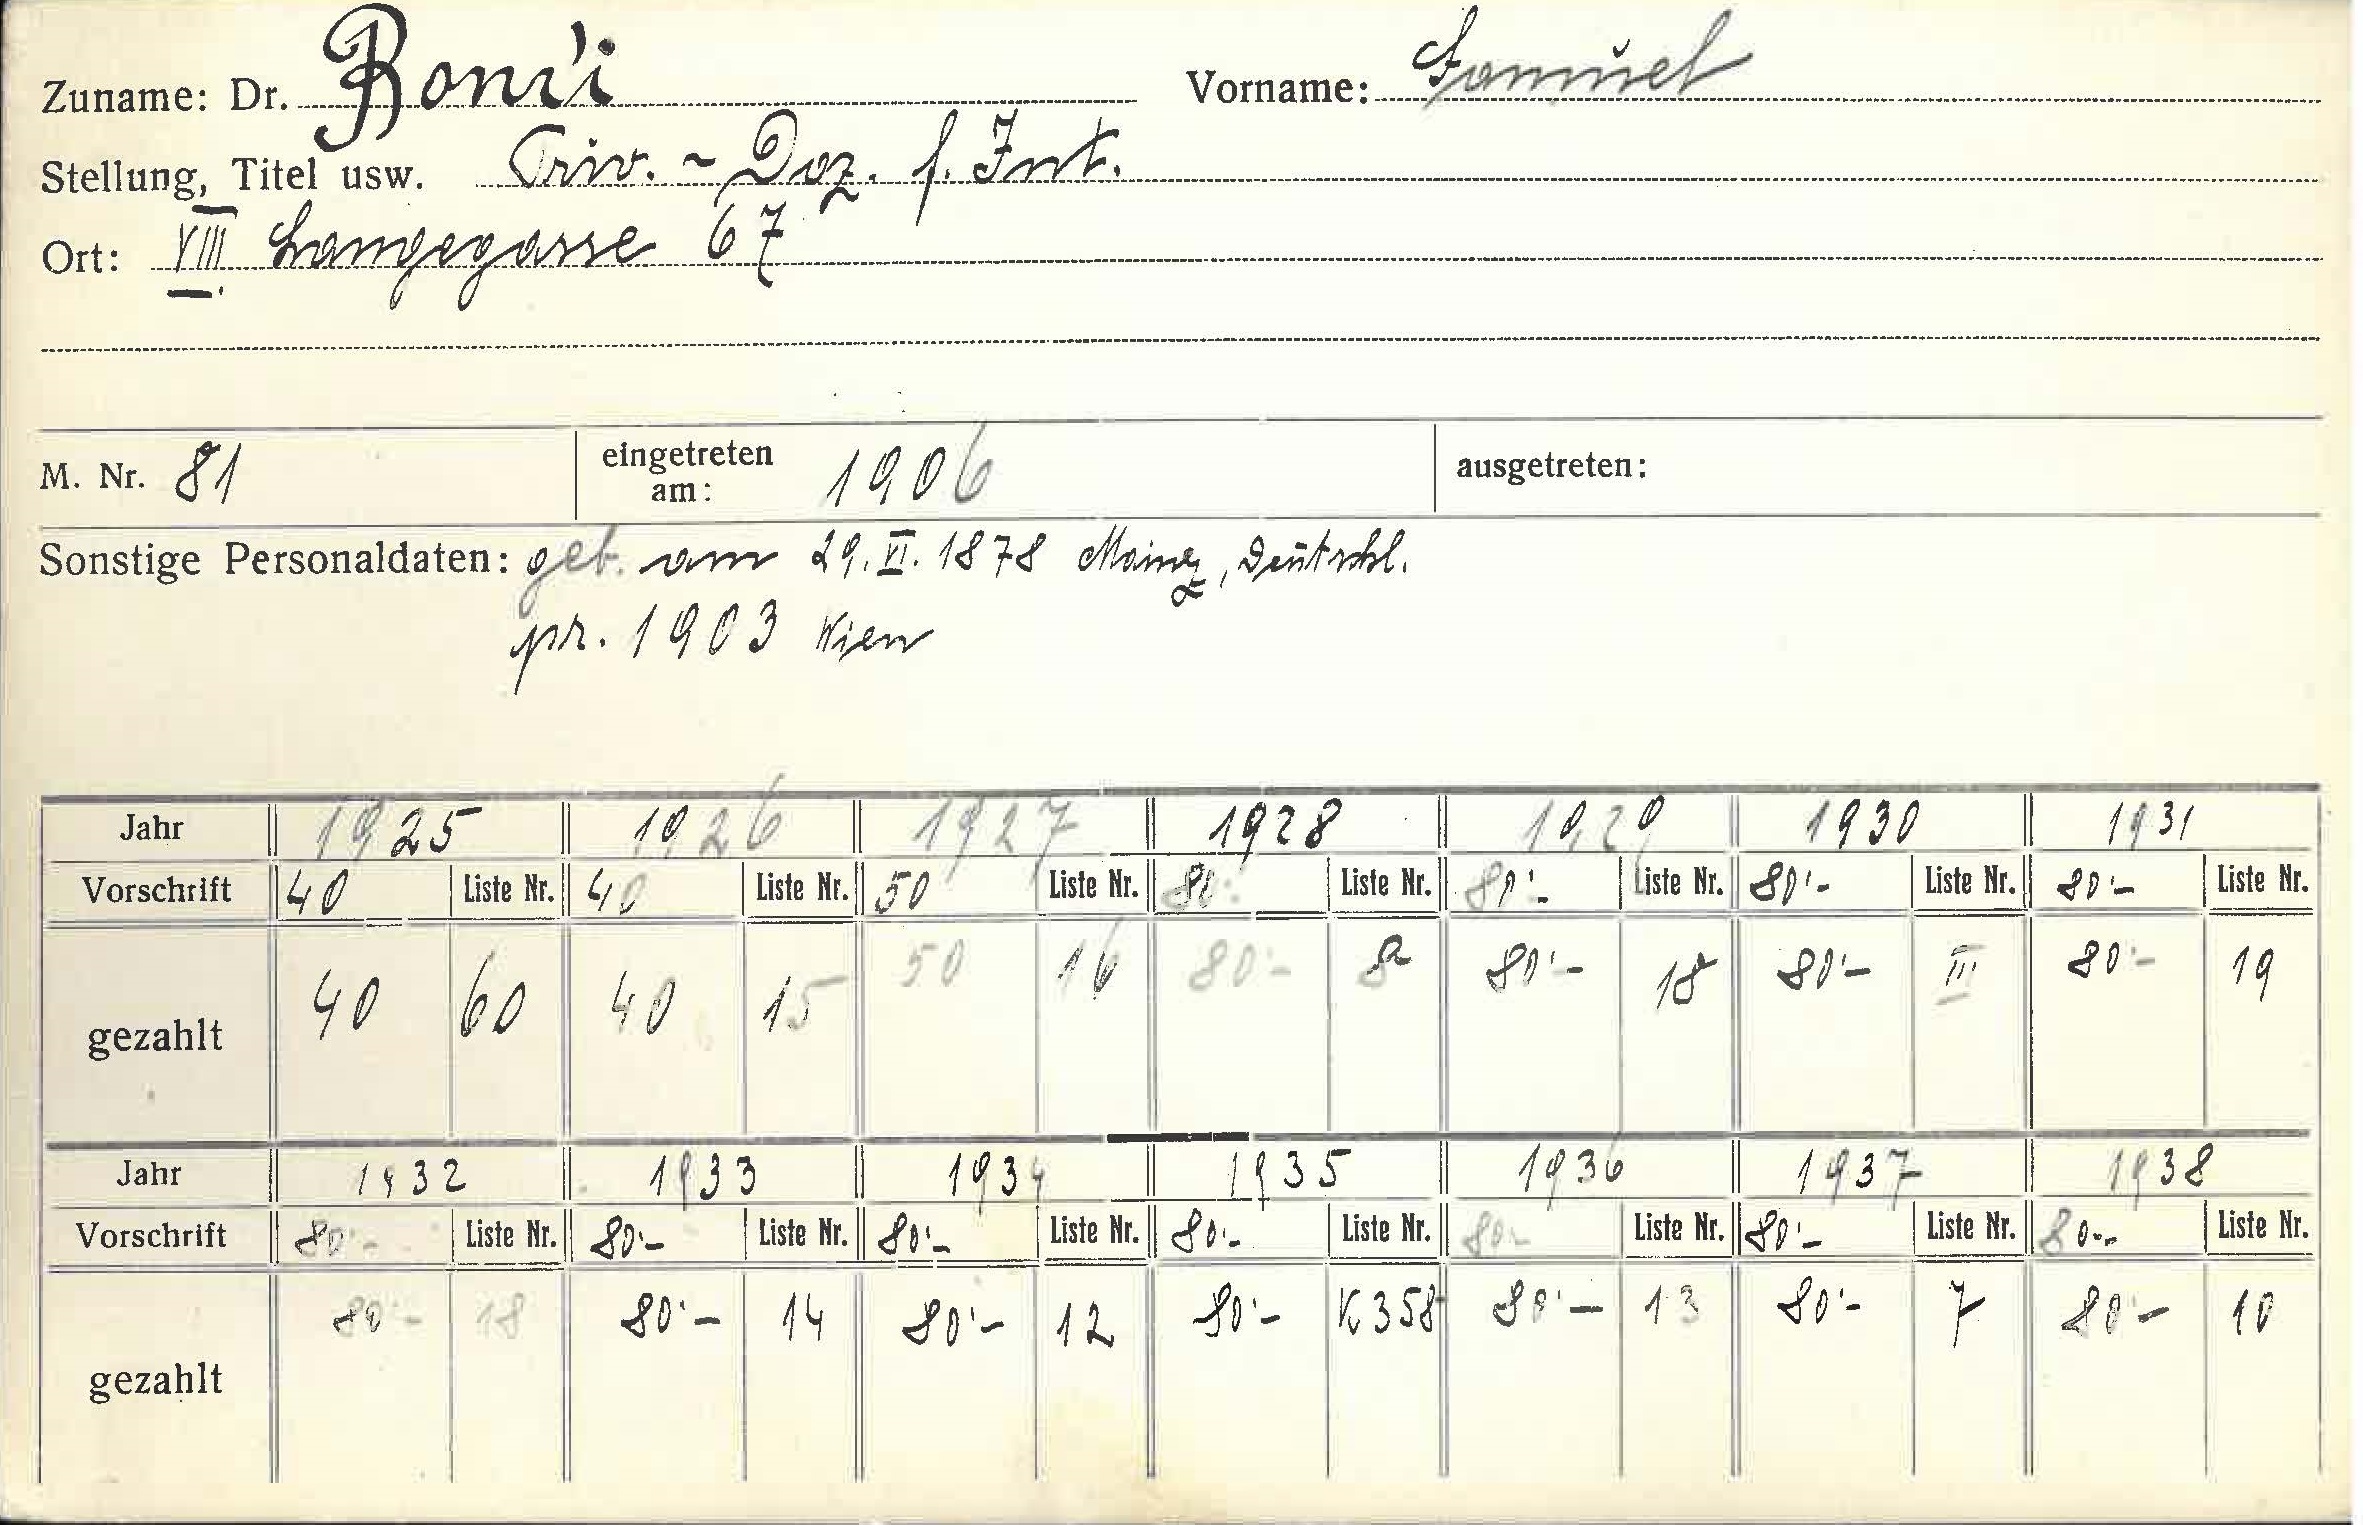 Zuname: Dr. Bondi Vorname: Samuel
Stellung, Titel usw. Priv. - Doz. f. Int.
Ort: VIII. Langegasse 67
M. Nr. 81 eingetreten am: 1906 ausgetreten:
Sonstige Personaldaten: geb. am 29. VI. 1878 Mainz, Deutschl.
pr. 1903 Wien
Jahr 1925 1926 1927 1928 1929 1930 1931
Vorschrift 40 Liste Nr. 40 Liste Nr. 50 Liste Nr. 80·- Liste Nr. 80·- Liste Nr. 80·- Liste Nr. 80·- Liste Nr.
gezahlt 40 60 40 15 50 16 80·- 8 80·- 18 80·- III 80·- 19
Jahr 1932 1933 1934 1935 1936 1937 1938
Vorschrift 80·- Liste Nr. 80·- Liste Nr. 80·- Liste Nr. 80·- Liste Nr. 80·- Liste Nr. 80·- Liste Nr. 80·- Liste Nr.
gezahlt 80·- 18 80·- 14 80·- 12 80·- K 358 80·- 13 80·- 7 80·- 10